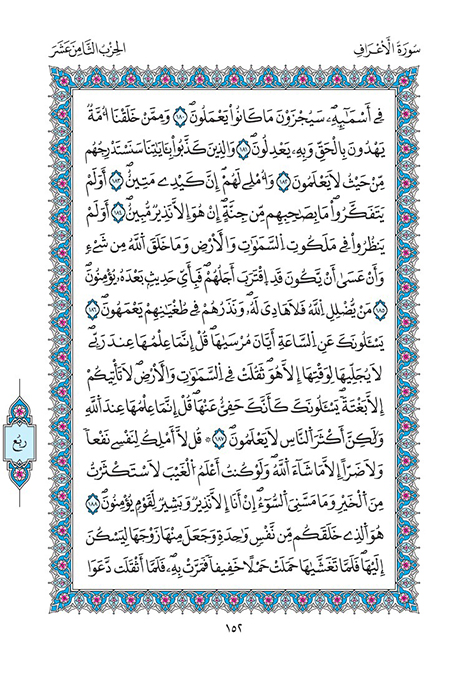 سُورَةُ الْأَعْرَافِ
الحِزْبُ الثَّامِنَ عَشَرَ
فِے أَسْمَٰٓئِهِۦۖ سَيُجْزَوْنَ مَا كَانُواْ يَعْمَلُونَۖ ١٨٠ وَمِمَّنْ خَلَقْنَآ أُمَّةٞ
يَهْدُونَ بِالْحَقِّ وَبِهِۦ يَعْدِلُونَۖ ١٨١ وَالذِينَ كَذَّبُواْ بِـَٔايَٰتِنَا سَنَسْتَدْرِجُهُم
مِّنْ حَيْثُ لَا يَعْلَمُونَۖ ١٨٢ وَأُمْلِے لَهُمُۥٓ إِنَّ كَيْدِے مَتِينٌۖ ١٨٣ أَوَلَمْ
يَتَفَكَّرُواْۖ مَا بِصَٰحِبِهِم مِّن جِنَّةٍۖ اِنْ هُوَ إِلَّا نَذِيرٞ مُّبِينٌۖ ١٨٤ اَوَلَمْ
يَنظُرُواْ فِے مَلَكُوتِ اِلسَّمَٰوَٰتِ وَالَارْضِ وَمَا خَلَقَ اَللَّهُ مِن شَےْءٖ
وَأَنْ عَسَىٰٓ أَنْ يَّكُونَ قَدِ اِقْتَرَبَ أَجَلُهُمْۖ فَبِأَيِّ حَدِيثِۢ بَعْدَهُۥ يُؤْمِنُونَۖ
١٨٥ مَنْ يُّضْلِلِ اِللَّهُ فَلَا هَادِيَ لَهُۥۖ وَنَذَرُهُمْ فِے طُغْيَٰنِهِمْ يَعْمَهُونَۖ ١٨٦
يَسْـَٔلُونَكَ عَنِ اِلسَّاعَةِ أَيَّانَ مُرْسَىٰهَاۖ قُلِ اِنَّمَا عِلْمُهَا عِندَ رَبِّےۖ
لَا يُجَلِّيهَا لِوَقْتِهَآ إِلَّا هُوَۖ ثَقُلَتْ فِے اِلسَّمَٰوَٰتِ وَالَارْضِۖ لَا تَأْتِيكُمُۥٓ
إِلَّا بَغْتَةٗۖ يَسْـَٔلُونَكَ كَأَنَّكَ حَفِيٌّ عَنْهَاۖ قُلِ اِنَّمَا عِلْمُهَا عِندَ اَللَّهِ
وَلَٰكِنَّ أَكْثَرَ اَلنَّاسِ لَا يَعْلَمُونَۖ ١٨٧ ۞ قُل لَّآ أَمْلِكُ لِنَفْسِے نَفْعاٗ
وَلَا ضَرّاً اِلَّا مَا شَآءَ اَللَّهُۖ وَلَوْ كُنتُ أَعْلَمُ اُلْغَيْبَ لَاسْتَكْثَرْتُ
مِنَ اَلْخَيْرِ وَمَا مَسَّنِيَ اَلسُّوٓءُۖ اِنَ اَنَآ إِلَّا نَذِيرٞ وَبَشِيرٞ لِّقَوْمٖ يُؤْمِنُونَۖ ١٨٨
هُوَ اَلذِے خَلَقَكُم مِّن نَّفْسٖ وَٰحِدَةٖ وَجَعَلَ مِنْهَا زَوْجَهَا لِيَسْكُنَ
إِلَيْهَاۖ فَلَمَّا تَغَشَّىٰهَا حَمَلَتْ حَمْلاً خَفِيفاٗ فَمَرَّتْ بِهِۦۖ فَلَمَّآ أَثْقَلَت دَّعَوَا
رُبُع
١٥٢